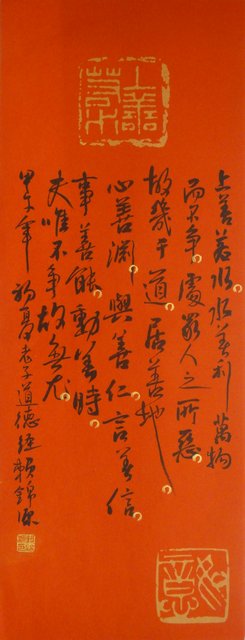 上善若水
上善若水水善利萬物
而不爭處眾人之所惡
故幾于道居善地
心善淵與善仁言善信
事善能動善時
夫唯不爭故無尤
甲午年初夏老子道德經賴錦源